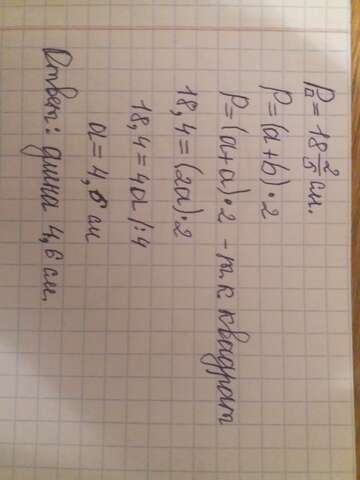 P▫ = 18 2/5 см.
P=(a+b)·2
P=(a+a)·2 - т.к квадрат
18,4=(2a)·2
18,4=4a /:4
a=4,6 см
Ответ: длина 4,6 см.